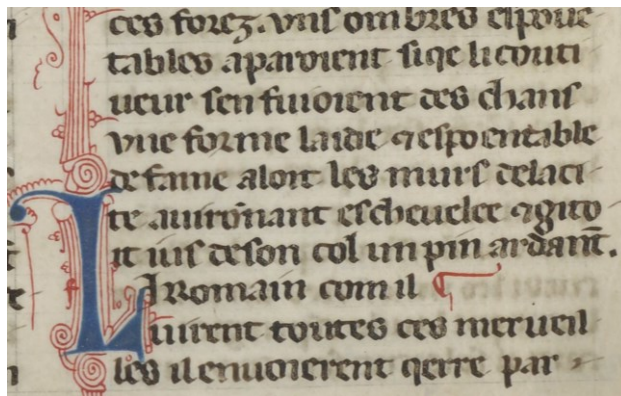 ces forez. vnis ombres espoue
tables aparoient siqe li couti
ueur sen fuioient des chans
vne forme laide ⁊ espoentable
de fame aloit les murs delaci
te auirōnant escheuelee ⁊ gito
it ius de son col un pin ardant̄.
LI Romain com il ¶
uirent toutes ces merueil
les il enuoierent qerre par